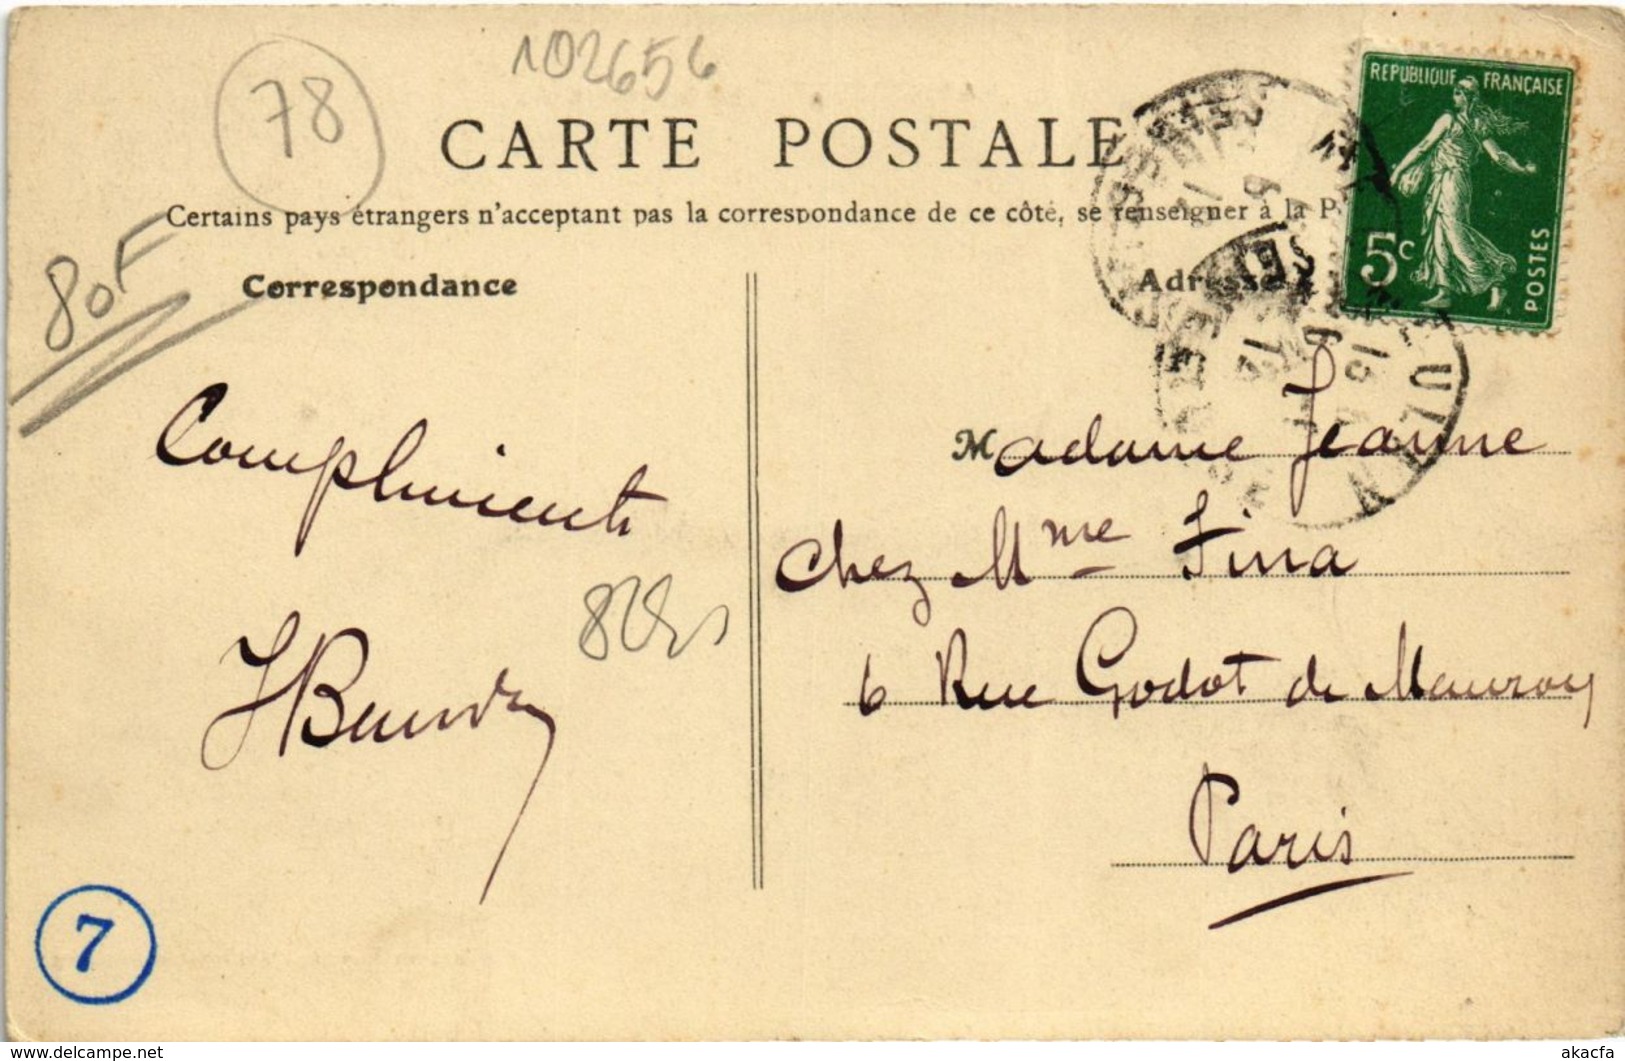 102656
78
REPUBLIQUE FRANÇAISE
5c
POSTES
CARTE POSTALE
Certains pays étrangers n'acceptent pas la correspondance de ce côté, se renseigner à la P
80F
Correspondance
Adresse
Compliments
Madame Jeanne
chez Mme Fina
6 Rue Godot de Mauroy
Paris
7
delcampe.net
akacfa